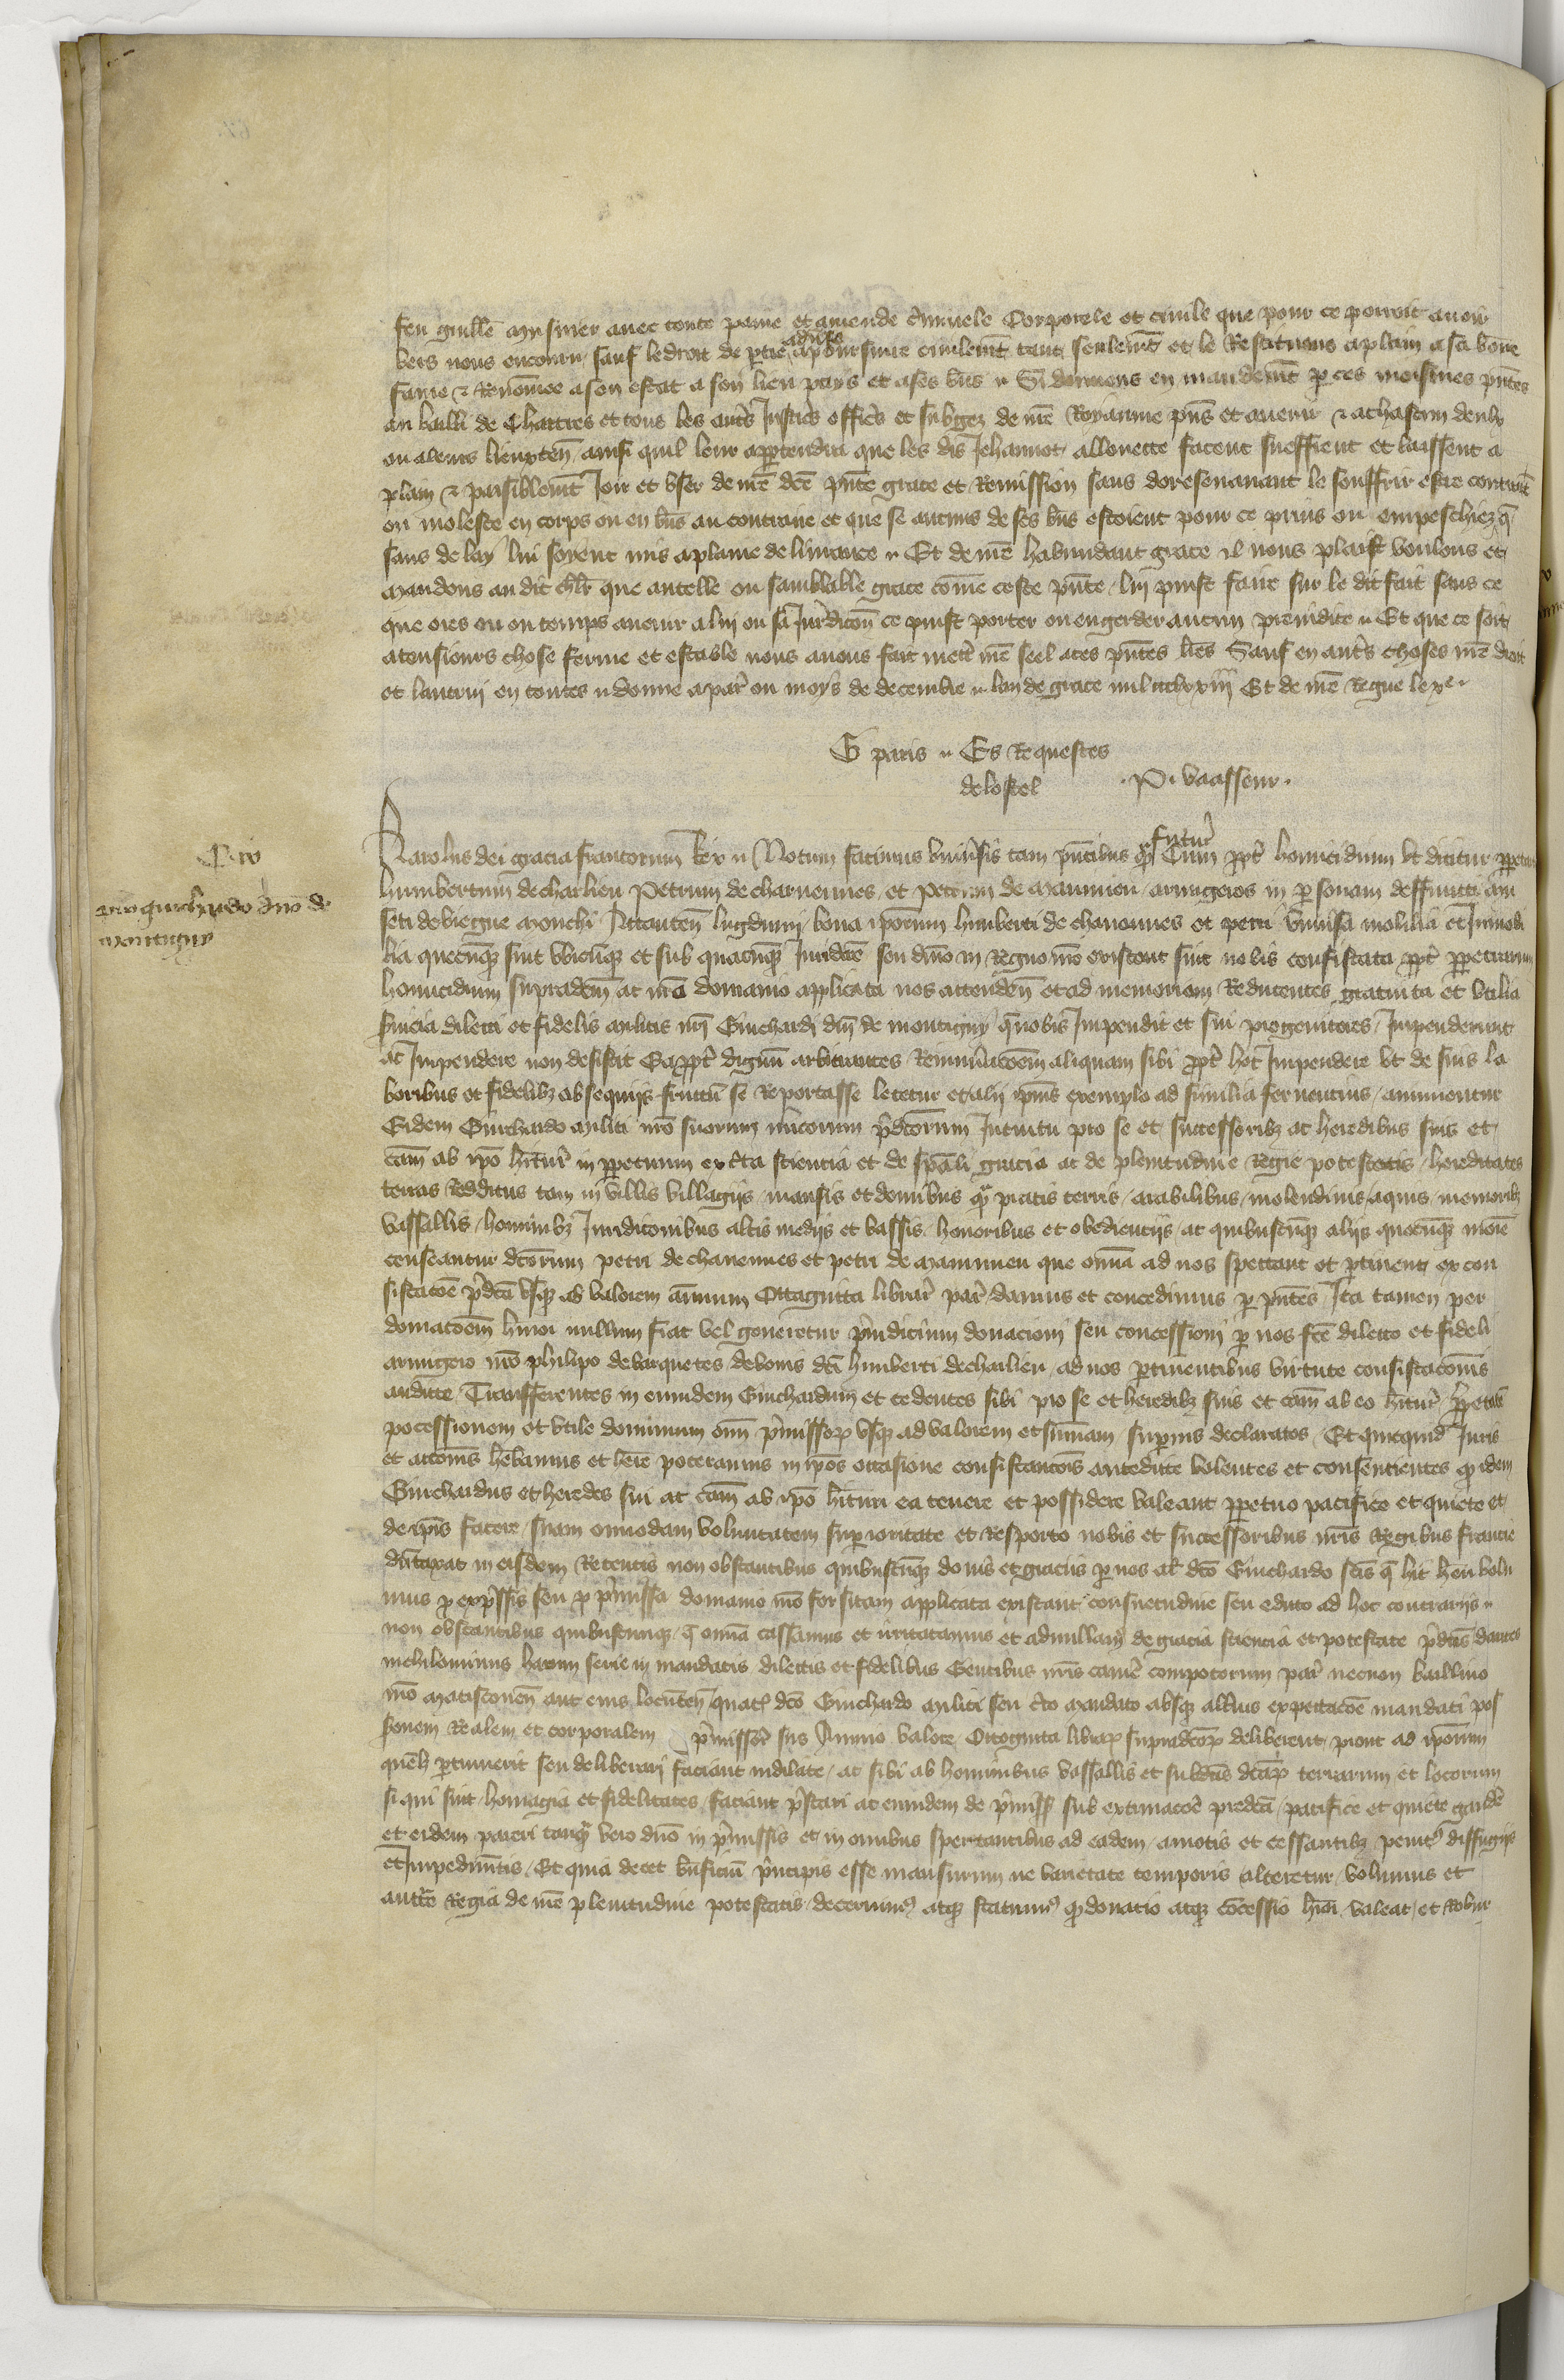 feu guille musnier avec toute peine et amende criminele corporele et civile que pour ce povoit avoir
vers nous encouru sauf le droit de partie adverse a poursuire civilemt tant seulemt et le Restituons a plain a sa bone
fame & Renomee a son estat a son lieu pays et a ses bns Si donnons en mandemt p ces meismes pntes
au bailli de Chartres et tous les autrs Justicrs officrs et subgez de nre Royaume pns et avenir & a chascun deulx
ou a leurs lieuxten ainsi quil leur appartendra que les dis Jehannot allouecte facent sueffrent et laissent a
plain & paisiblemt Joir et user de nre dce pnte grace et Remission sans doresenavant le souffrir estre contraint
ou moleste en corps ou en bns au contraire et que se aucuns de ses bns estoient pour ce prins ou empeschiez q
sans delay lui soyent mis a plaine delivrance Et de nre habundant grace il nous plaist voulons et
mandons au dit chlr que autelle ou samblable grace come ceste pnte lui puist faire sur le dit fait sans ce
que ores ou ou temps avenir a lui ou sa Jurdicon ce puist porter ou engerder aucun preiudice Et que ce soit
a tousiours chose ferme et estable nous avons fait mettr nre seel a ces pntes lres Sauf en autrs choses nre droit
et lautrui en toutes donne a par ou moys de decembre lan de grace mil ccclxxiii Et de nre Regne le xe
G paris Es Requestes
de lostel P. vaasseur
Pro
mro guichardo dno de
montigny
Karolus dei gracia francorum Rex Notum facimus universis tam pntibus q futur Cum ppt homicidium ut dicitur ppetratum
humbertum de charlieu Petrum de charnennes et Petrum de maumien armigeros in personam deffuncti an
seti de biegue monchi Attauten lugduni bona iporum humberti de chavennes et petri univsa mobilia et Inmobi
lia quecumq sint ubicumq et sub quacumq Juridice seu dnio in Regno nro existent sint nobis confiscata ppt ppetratum
homicidium supradcm ac nro domanio applicata nos attenden et ad memoriam Reducentes gratuita et utilia
svicia dilecti et fidelis militis nri Guichardi dni de montigny q nobis Impendit et sui progenitores Impenderunt
ac Impendere non desistit Ea ppt dignum arbitrantes Remuneracoem aliquam sibi ppt hoc Impendere ut de suis la
boribus et fidelibz obsequiis fructu se Reportasse letetur et alii ipius exemplo ad similia ferventius animentur
Eidem Guichardo militi nro suorum mericorum pdcorum Intuitu pro se et successoribz ac heredibus suis et
cam ab ipo hitur in ppetuum ex crta sciencia et de spali gracia ac de plenitudine Regie potestatis hereditates
terras Redditus tam in villis villagiis mansis et domibus q pratis terris arabilibus molendinis aquis nemoribz
vassallis hominibz Juridiconibus altis mediis et bassis honoribus et obedienciis ac quibuscumq aliis quocumq noie
censeantur dcorum petri de chavennes et petri de maumien que oma ad nos spectant et ptinent ex con
fiscacoe pdca usq ad valorem annuum Octaginta librar par damus et concedimus p pntes Ita tamen per
donacoem hmoi nullum fiat vel generetur preiudicium donacioni seu concessioni p nos fce dilecto et fideli
armigero nro philipo de barquetes de bonis dci humberti de charlieu ad nos ptinentibus virtute confiscacois
andicte Transfferentes in eundem Guichardum et cedentes sibi pro se et heredibz suis et cam ab eo hitur ppetuo
pocessionem et utile dominium oim pmissor usq ad valorem et sumam supius declaratos Et quicquid Juris
et accois hebamus et here poteramus in ipos occasione confiscacois antedicte volentes et consentientes q idem
Guichardus et heredes sui ac cam ab ipo hituri ea tenere et possidere valeant ppetuo pacifice et quiete et
de ipis facere suam omodam voluntatem supioritate et Resporto nobis et successoribus nris Regibus francie
dutaxat in eisdem Retentis non obstantibus quibuscumq donis et graciis p nos al dco Guichardo fcis q hic heri volu
mus p expssis seu p pmissa domanio nro forsitam applicata existant consuetudine seu edicto ad hoc contrariis
non obstantibus quibuscumq q oma cassamus et irritatamus et adnullam de gracia sciencia et potestate pdcis dantes
nichilominus harum serie in mandatis dilectis et fidelibus Gentibus nris camre compotorum par necnon baillivo
nro matisconen aut eius locunten quat dco Guichardo militi seu crto mandato absq altius expectacoe mandati pos
sionem Realem et corporalem pmissor sus Annuo valore Octoginta librar supradcor deliberent prout ad iporum
quelt ptinuerit seu deliberari faciant indilate ac sibi ab hominibus vassallis et subdis dcar terrarum et locorum
si qui sint homagia et fidelitates faciant pstari ac eundem de pmiss sub extimacoe predca pacifice et quiete gaudre
et eidem pareri tanq vero dno in pmissis et in omibus spectantibus ad eadem amotis et cessantibz penits diffugiis
et Impedimtis Et quia decet bnficiu pncipis esse mansurum ne varietate temporis alteretur volumus et
auctte Regia de nre plenitudine potestatis decernims atq statuims q donatio atq concessio hmoi valeat et Robur